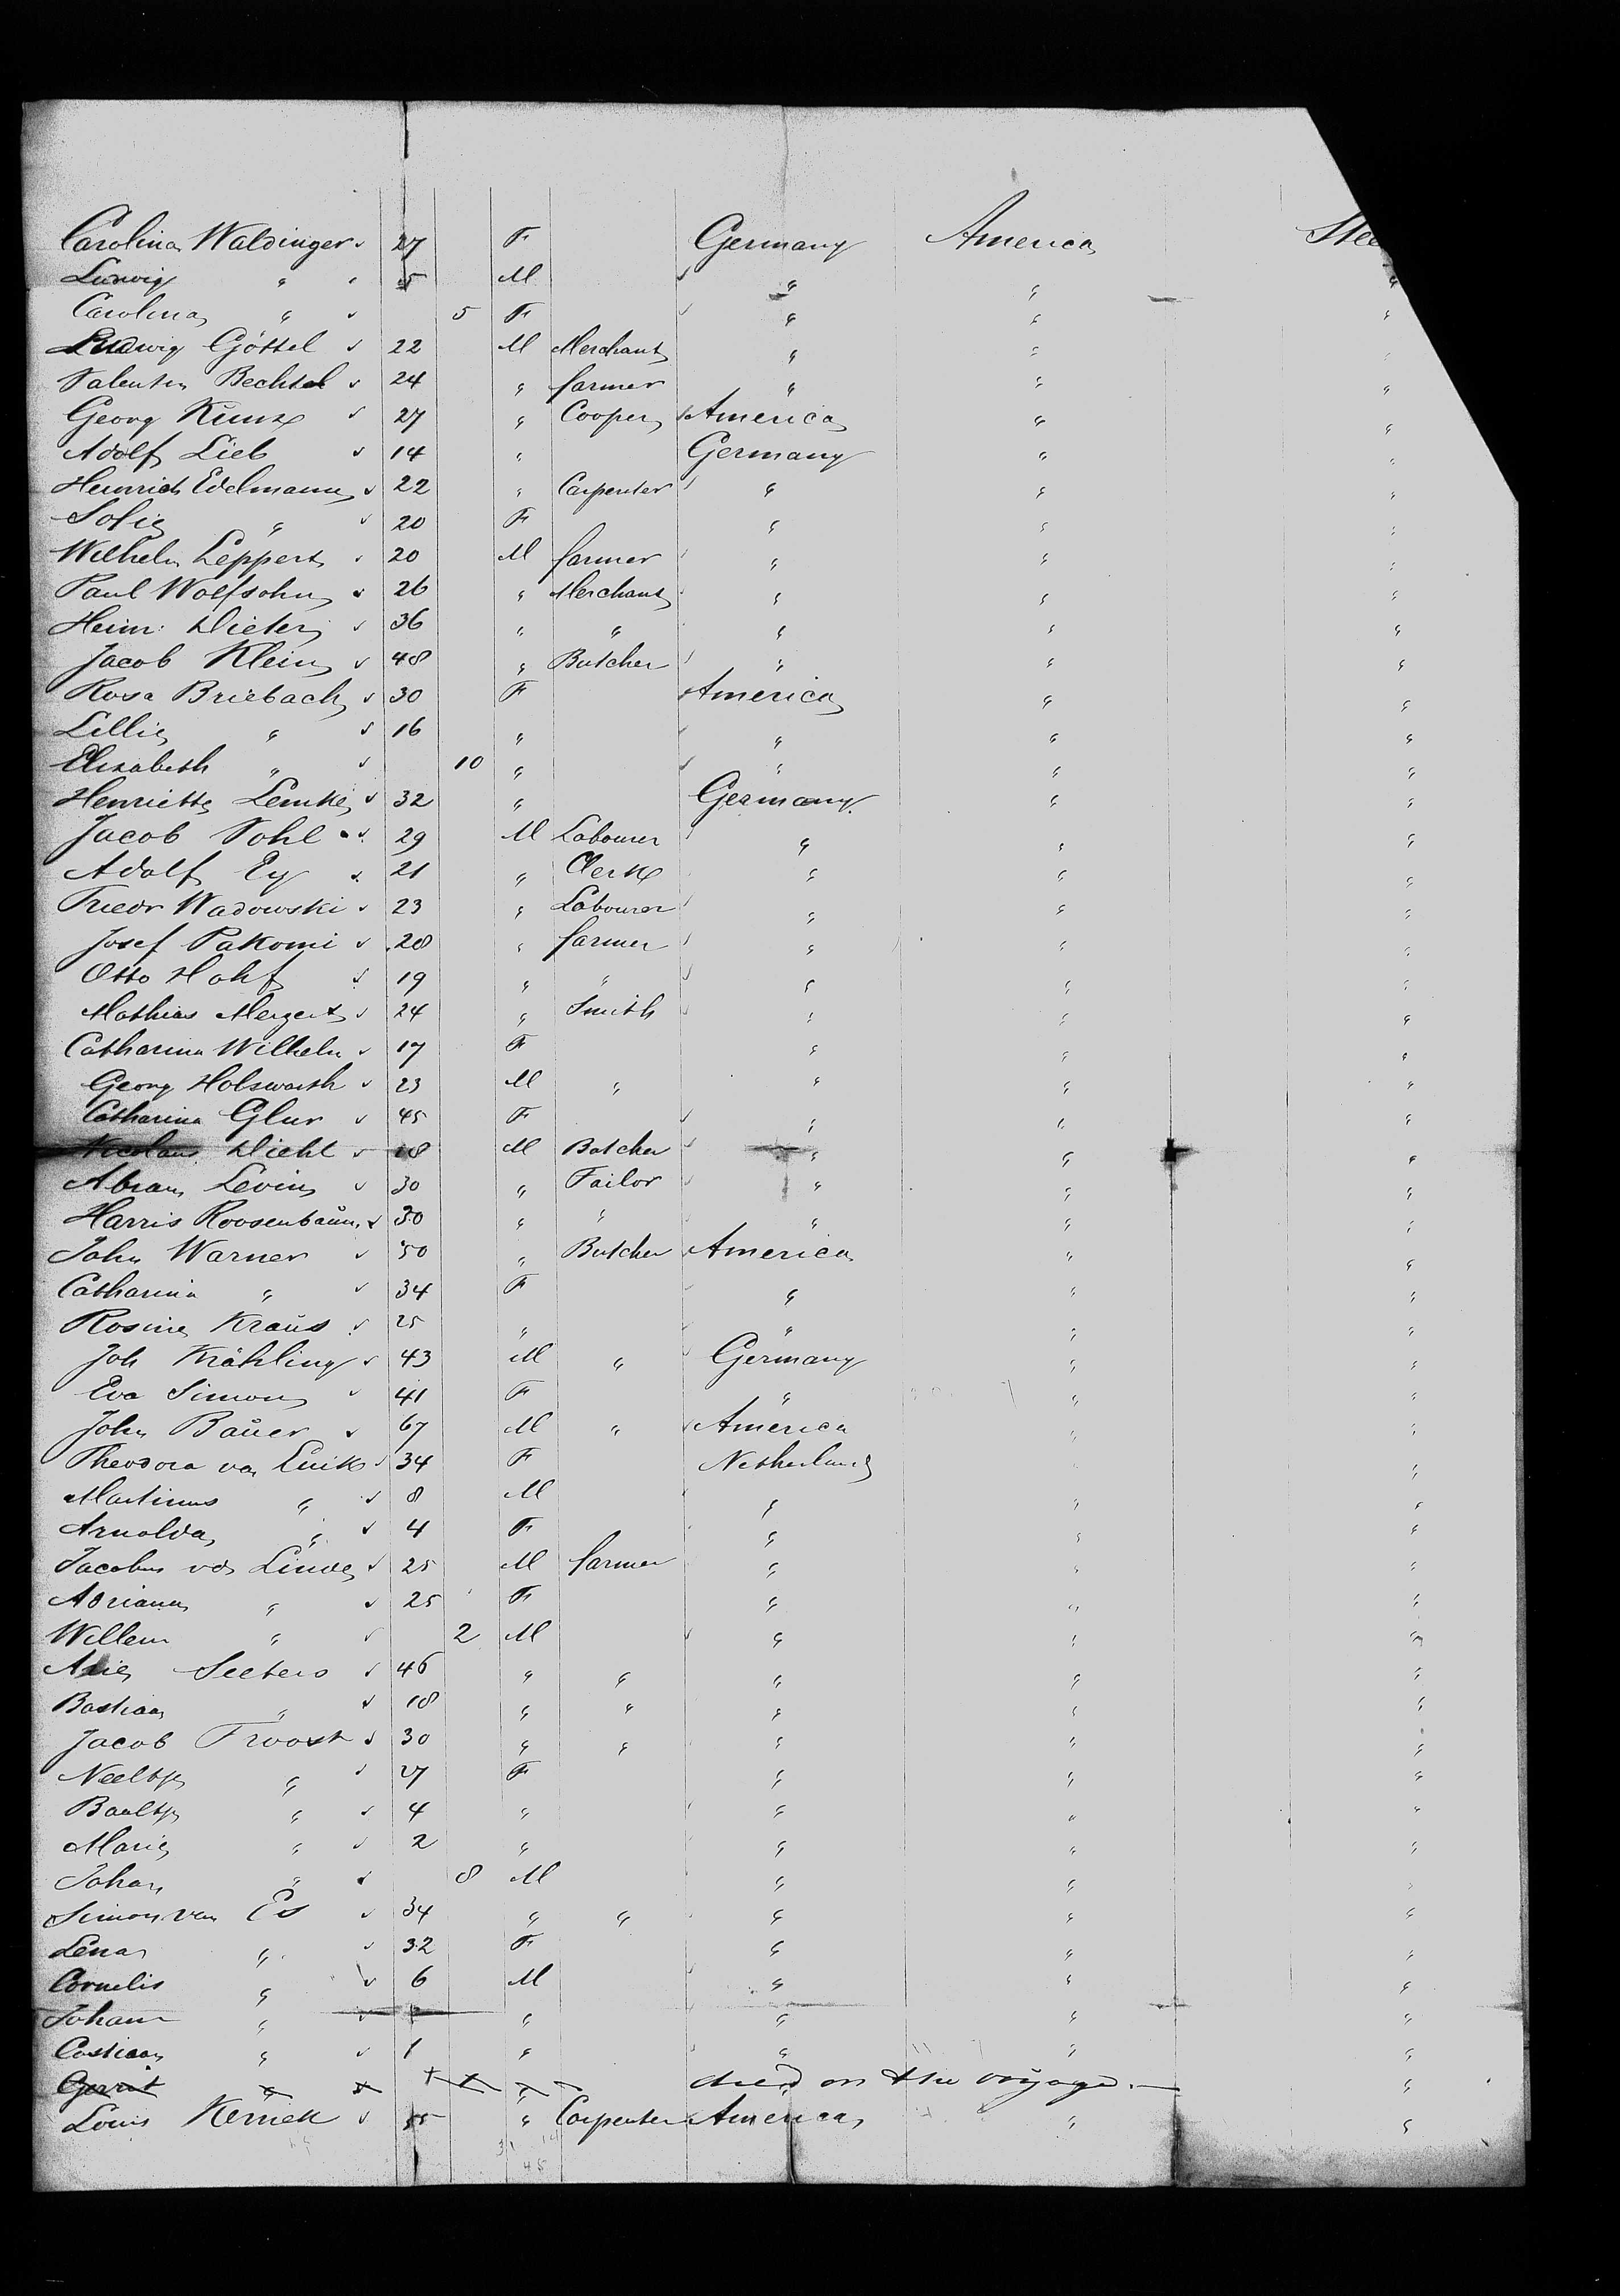 Carolina Waldinger 27 F Germany America Stee
Ludwig " 5 M " " "
Carolina " 5 F " " "
Ludwig Göttel 22 M Merchant " " "
Valentin Bechtel 24 " farmer " " "
Georg Kunz 27 " Cooper America " "
Adolf Lieb 14 " Germany " "
Heinrich Edelmann 22 " Carpenter " " "
Sofie " 20 F " " "
Wilhelm Leppert 20 M farmer " " "
Paul Wolfsohn 26 " Merchant " " "
Heinr: Dieter 36 " " " " "
Jacob Klein 48 " Butcher " " "
Rosa Briebach 30 F America " "
Lillie " 16 " " " "
Elisabeth " 10 " " " "
Henriette Lemke 32 " Germany " "
Jacob Vohl 29 M Labourer " " "
Adolf Ey 21 " Clerk " " "
Friedr Wadowski 23 " Labourer " " "
Josef Pakomi 28 " farmer " " "
Otto Hohf 19 " " " " "
Mathias Mergert 24 " Smith " " "
Catharina Wilhelm 17 F " " "
Georg Holswarth 23 M " " " "
Catharina Glur 45 F " " "
Nicolaus Diehl 18 M Butcher " " "
Abram Levin 30 " Tailor " " "
Harris Roosenbaum 30 " " " " "
John Warner 50 " Butcher America " "
Catharina " 34 F " " "
Rosine Kraus 25 " " " "
Joh Krähling 43 M " Germany " "
Eva Simon 41 F " " "
John Bauer 67 M " America " "
Theodora van Luik 34 F Netherland " "
Martinus " 8 M " " "
Arnolda " 4 F " " "
Jacobus vd Linde 25 M farmer " " "
Adriana " 25 F " " "
Willem " 2 M " " "
Arie Seeters 46 " " " " "
Bastiaan " 18 " " " " "
Jacob Troost 30 " " " " "
Neeltje " 27 F " " "
Baaltje " 4 " " " "
Marie " 2 " " " "
Johan " 8 M " " "
Simon van Es 34 " " " " "
Lena " 32 F " " "
Cornelis " 6 M " " "
Johann " " " " "
Bastiaan " 1 " " " "
Gerrit " " died on the voyage. "
Louis Kerriek 55 " Carpenter America " "